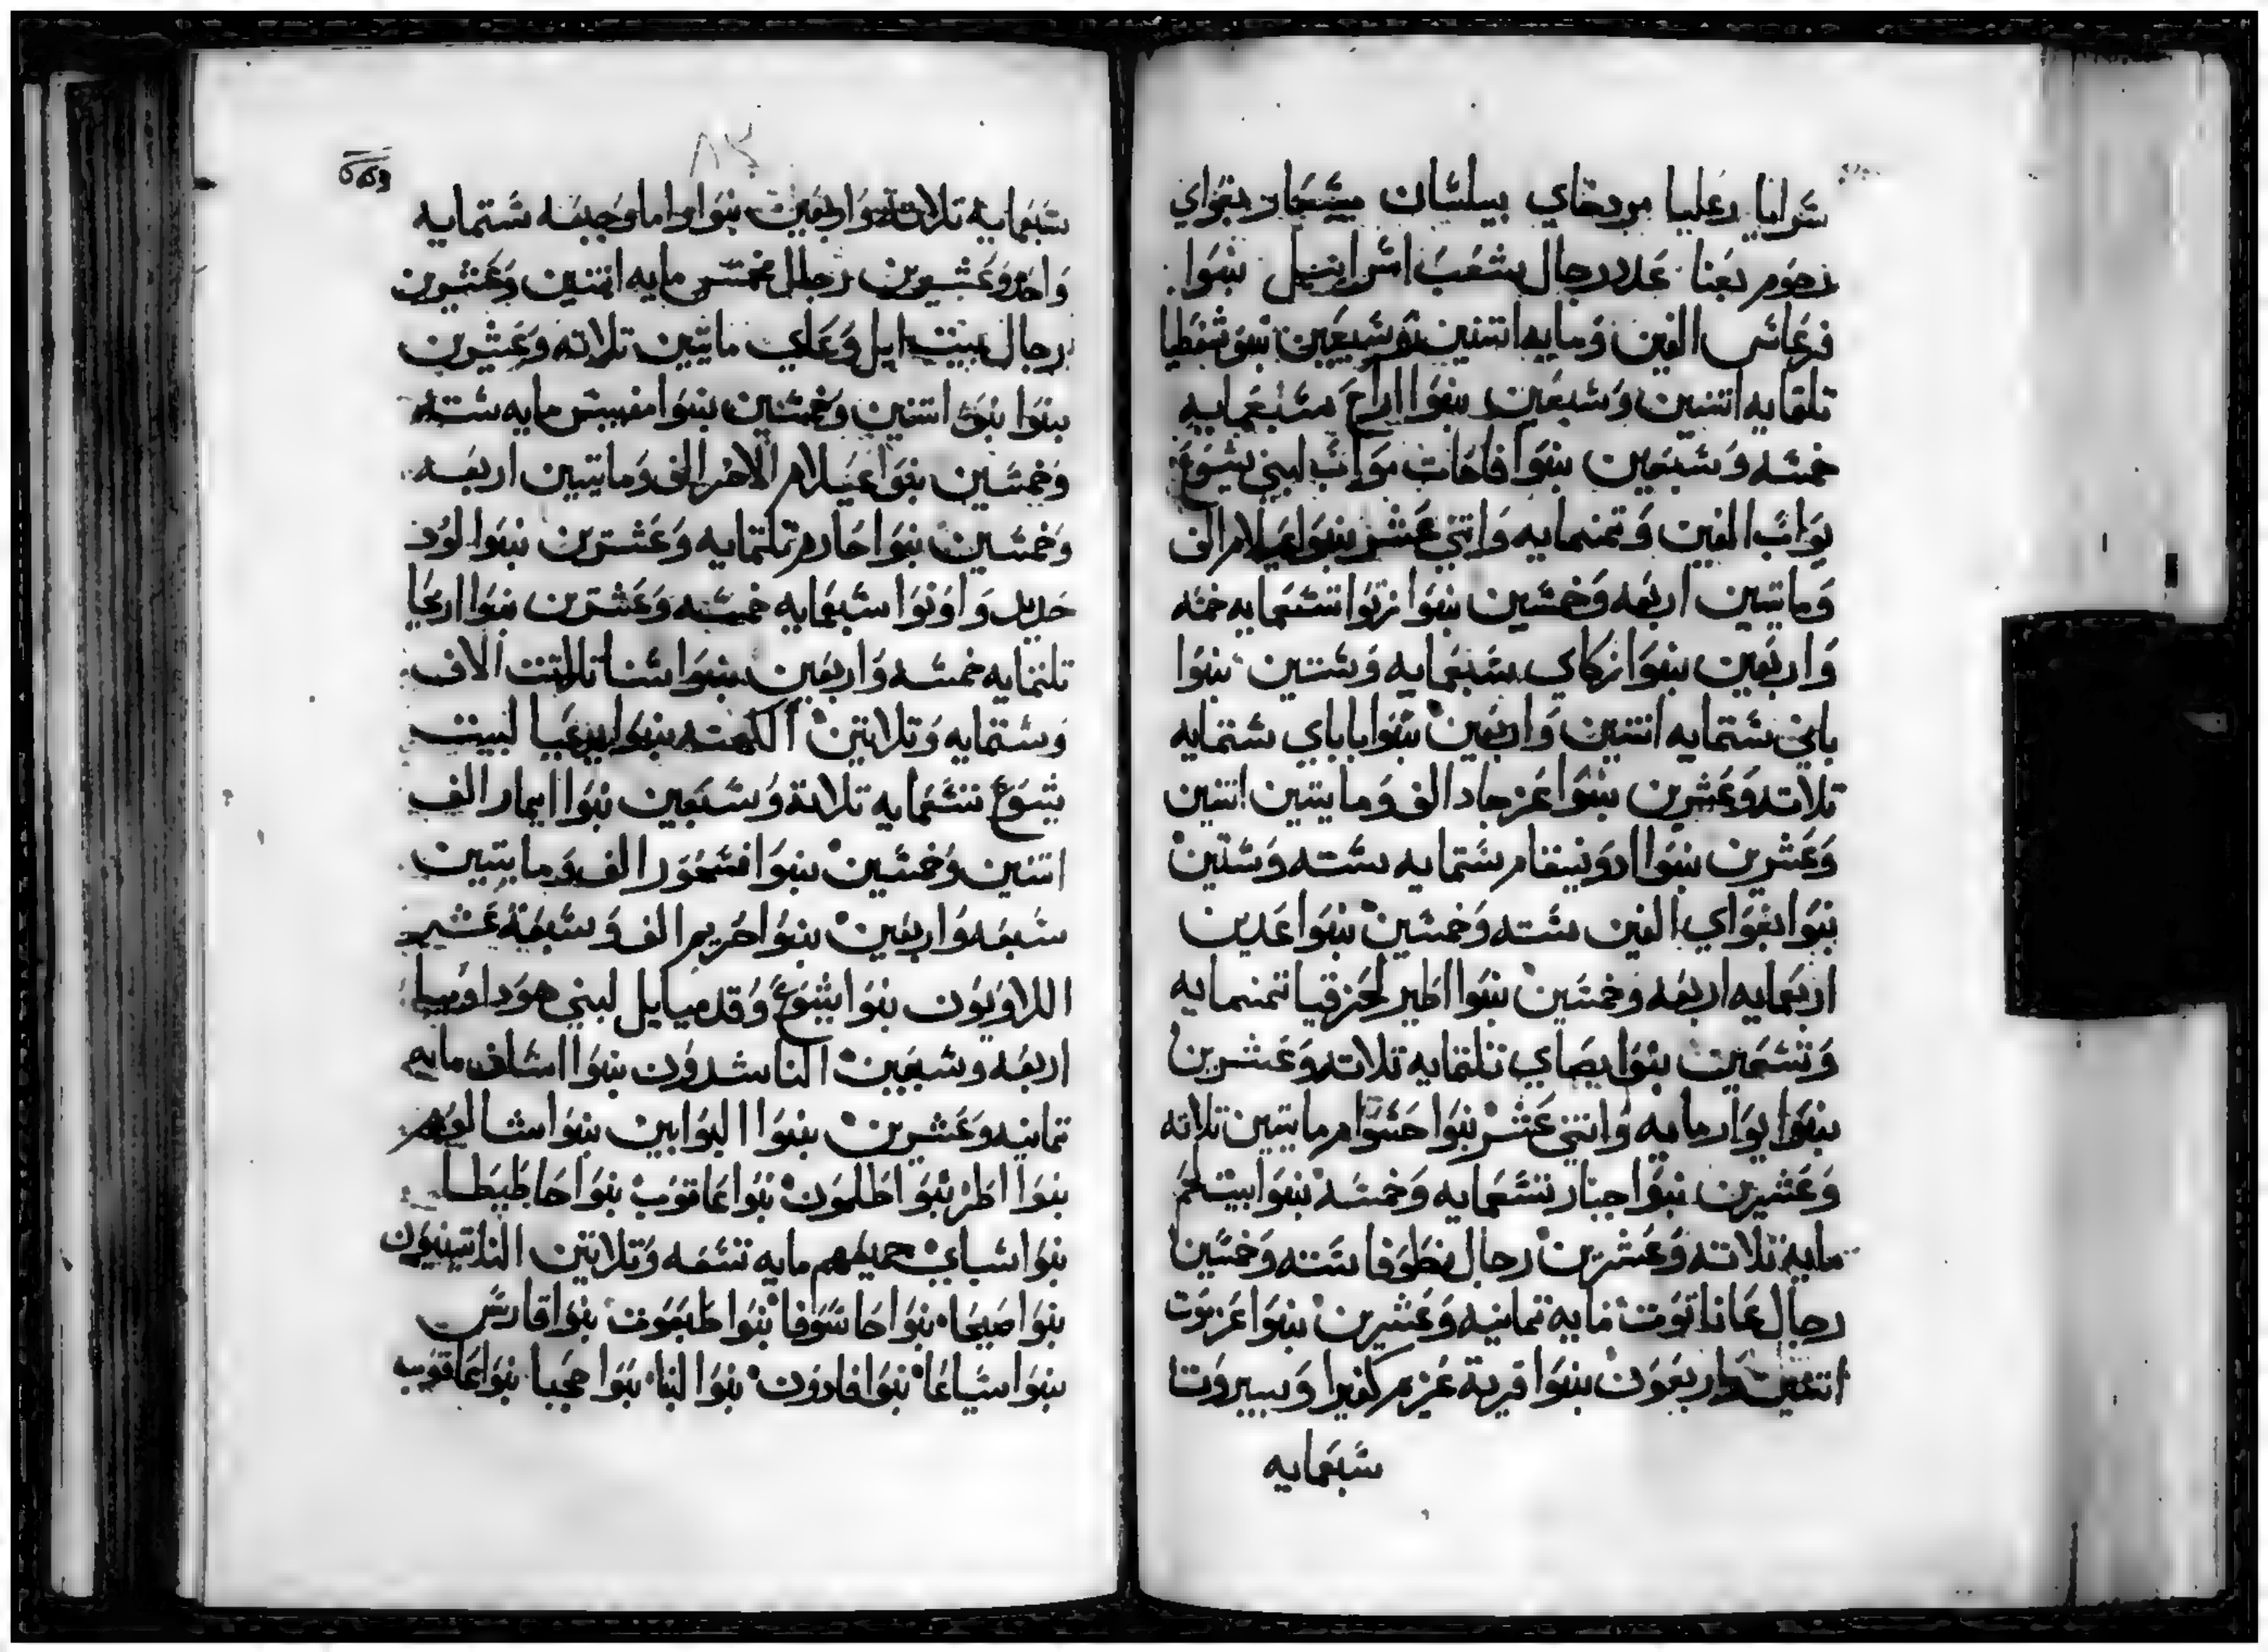 شرايا رعليا مردخاي بيلشان مشفار بغواي
نحوم بعنا عدد رجال شعب اسراييل بنوا
فرعاش الفين ومايه اتنين وسبعين بنو شفطيا
تلتمايه اتنين وسبعين بنوا اراح سبعمايه
خمسه وسبعين بنوا فاحات مواب لبني يشوع
يواب الفين وتمنمايه واتني عشر بنوا عيلام الف
ومايتين اربعه وخمسين بنوا زتوا تسعمايه خمسه
واربعين بنوا زكاي سبعمايه وستين بنوا
باني ستمايه اتنين واربعين بنوا باباي ستمايه
تلاته وعشرين بنوا عزجاد الف ومايتين اتنين
وعشرين بنوا ادونيقام ستمايه سته وستين
بنوا بغواي الفين سته وخمسين بنوا عدين
اربعمايه اربعه وخمسين بنوا اطير لحزقيا تمنمايه
وتسعين بنوا بصاي تلتمايه تلاته وعشرين
بنوا يوار مايه واتني عشر بنوا حشوام مايتين تلاته
وعشرين بنوا جبار تسعمايه وخمسه بنوا بيت لحم
مايه تلاته وعشرين رجال نطوفا سته وخمسين
رجال عاناتوت مايه تمانيه وعشرين بنوا عزموت
اتنين واربعون بنوا قرية عزيم كفيرا وبيروتا
سبعمايه
سبعمايه تلاته واربعين بنوا راما وجبعه ستمايه
واحد وعشرين رجال مخمس مايه اتنين وعشرين
رجال بيت ايل وعاي مايتين تلاته وعشرين
بنوا نبو اتنين وخمسين بنوا مغبيش مايه سته
وخمسين بنوا عيلام الاخر الف ومايتين اربعه
وخمسين بنوا حارم تلتمايه وعشرين بنوا لود
حديد واونوا سبعمايه خمسه وعشرين بنوا اريحا
تلتمايه خمسه واربعين بنوا سنا تلاتت الاف
وستمايه وتلاتين الكهنه بنوا يدعيا لبيت
يشوع تسعمايه تلاته وسبعين بنوا ايمار الف
اتنين وخمسين بنوا فشحور الف ومايتين
سبعه واربعين بنوا حريم الف وسبعة عشر
اللاويون بنوا يشوع وقدميايل لبني هوداويا
اربعه وسبعين الناشدون بنوا اساف مايه
تمانيه وعشرين بنوا البوابين بنوا شالوم
بنوا اطر بنوا طلمون بنوا عاقوب بنوا حاطيطا
بنوا شباي جميعهم مايه تسعه وتلاتين الناتينيون
بنوا صيحا بنوا حاسوفا بنوا طبعوت بنوا قارس
بنوا سياعا بنوا فادون بنوا لبنا بنوا حجبا بنوا عاقوب